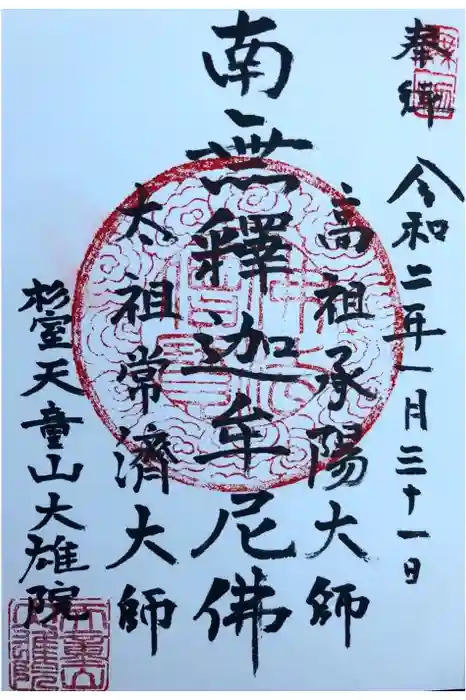 奉拝 令和二年一月三十一日
高祖承陽大師
南無釋迦牟尼佛
太祖常濟大師
杉室天童山大雄院